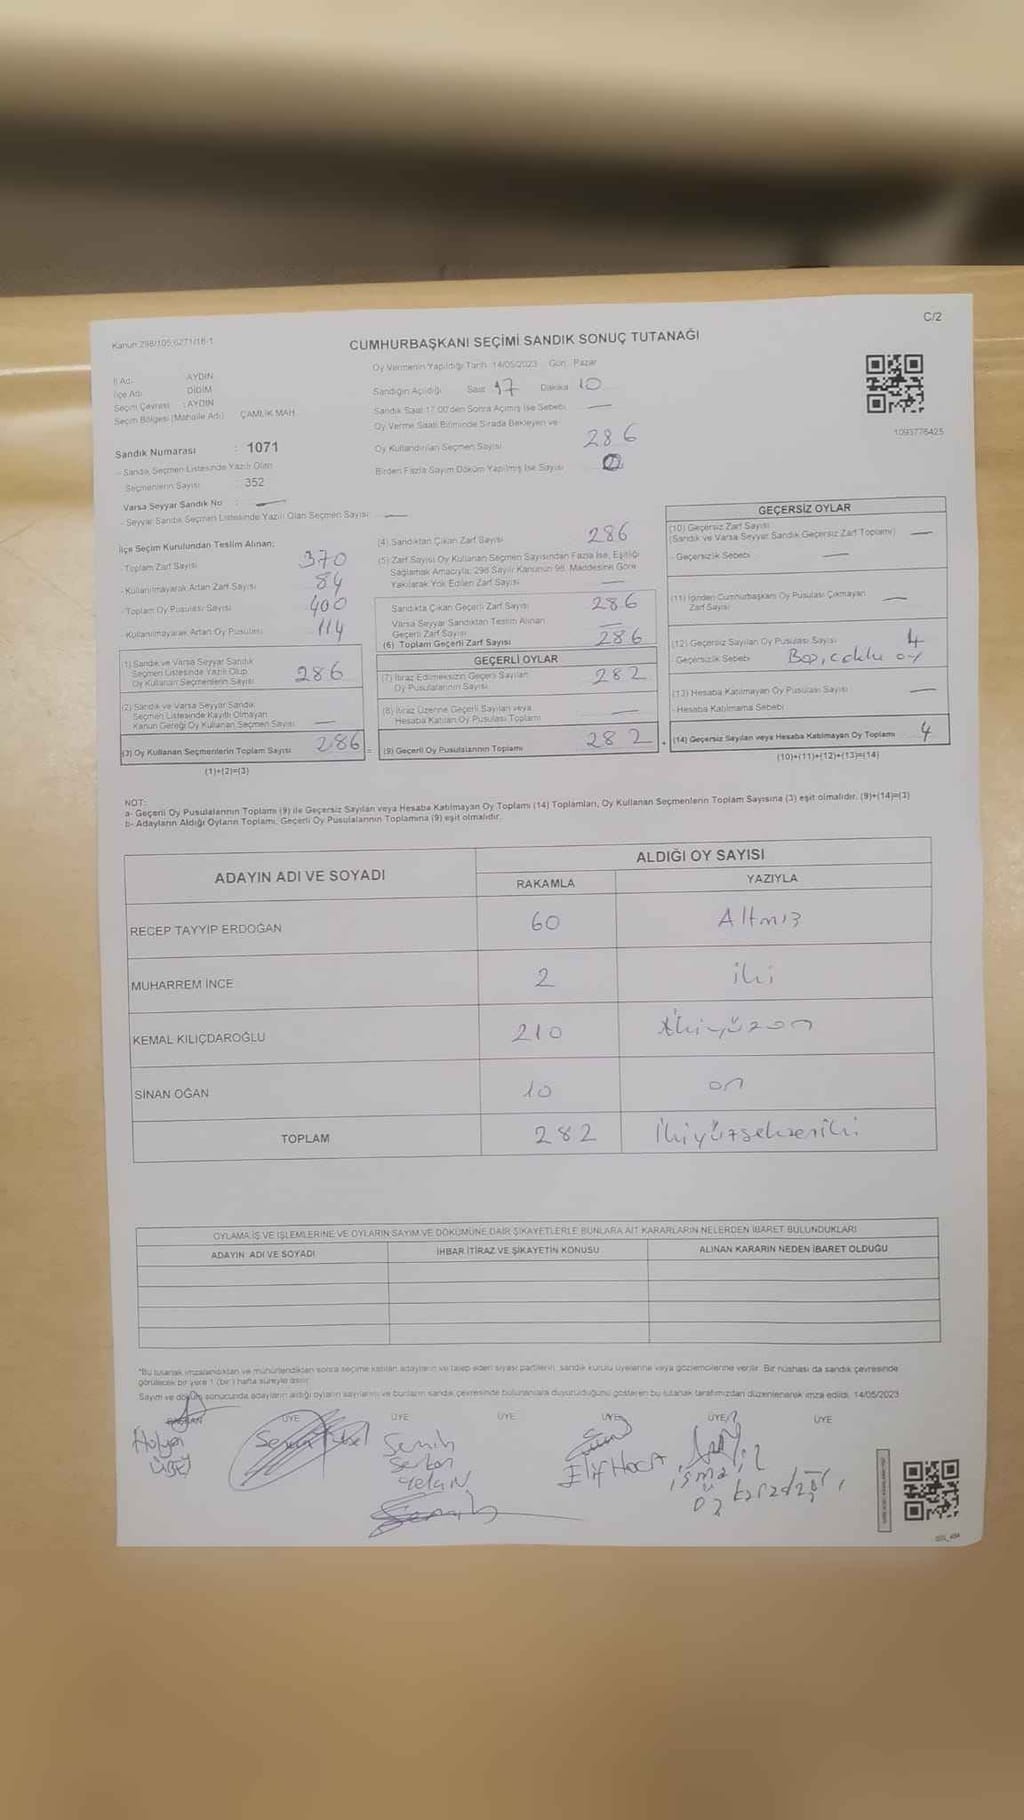 C/2
Kanun:298/105;6271/18-1
CUMHURBAŞKANI SEÇİMİ SANDIK SONUÇ TUTANAĞI
İl Adı : AYDIN
İlçe Adı : DİDİM
Seçim Çevresi : AYDIN
Seçim Bölgesi (Mahalle Adı) : ÇAMLIK MAH.
Sandık Numarası : 1071
- Sandık Seçmen Listesinde Yazılı Olan
Seçmenlerin Sayısı : 352
Varsa Seyyar Sandık No : —
- Seyyar Sandık Seçmen Listesinde Yazılı Olan Seçmen Sayısı : —
Oy Vermenin Yapıldığı Tarih: 14/05/2023 Gün: Pazar
Sandığın Açıldığı Saat 17 Dakika 10
Sandık Saat 17.00'den Sonra Açılmış İse Sebebi —
Oy Verme Saati Bitiminde Sırada Bekleyen ve
Oy Kullandırılan Seçmen Sayısı 286
Birden Fazla Sayım Döküm Yapılmış İse Sayısı
1093776425
İlçe Seçim Kurulundan Teslim Alınan;
- Toplam Zarf Sayısı 370
- Kullanılmayarak Artan Zarf Sayısı 84
- Toplam Oy Pusulası Sayısı 400
- Kullanılmayarak Artan Oy Pusulası 114
(1) Sandık ve Varsa Seyyar Sandık
Seçmen Listesinde Yazılı Olup
Oy Kullanan Seçmenlerin Sayısı 286
(2) Sandık ve Varsa Seyyar Sandık
Seçmen Listesinde Kayıtlı Olmayan
Kanun Gereği Oy Kullanan Seçmen Sayısı —
(3) Oy Kullanan Seçmenlerin Toplam Sayısı 286 =
(1)+(2)=(3)
(4) Sandıktan Çıkan Zarf Sayısı 286
(5) Zarf Sayısı Oy Kullanan Seçmen Sayısından Fazla İse, Eşitliği
Sağlamak Amacıyla, 298 Sayılı Kanunun 98. Maddesine Göre
Yakılarak Yok Edilen Zarf Sayısı —
Sandıkta Çıkan Geçerli Zarf Sayısı 286
Varsa Seyyar Sandıktan Teslim Alınan
Geçerli Zarf Sayısı —
(6) Toplam Geçerli Zarf Sayısı 286
GEÇERLİ OYLAR
(7) İtiraz Edilmeksizin Geçerli Sayılan
Oy Pusulalarının Sayısı 282
(8) İtiraz Üzerine Geçerli Sayılan veya
Hesaba Katılan Oy Pusulası Toplamı —
(9) Geçerli Oy Pusulalarının Toplamı 282 +
GEÇERSİZ OYLAR
(10) Geçersiz Zarf Sayısı
(Sandık ve Varsa Seyyar Sandık Geçersiz Zarf Toplamı) —
- Geçersizlik Sebebi —
(11) İçinden Cumhurbaşkanı Oy Pusulası Çıkmayan
Zarf Sayısı —
(12) Geçersiz Sayılan Oy Pusulası Sayısı 4
Geçersizlik Sebebi Boş, çoklu oy
(13) Hesaba Katılmayan Oy Pusulası Sayısı —
- Hesaba Katılmama Sebebi
(14) Geçersiz Sayılan veya Hesaba Katılmayan Oy Toplamı 4
(10)+(11)+(12)+(13)=(14)
NOT:
a- Geçerli Oy Pusulalarının Toplamı (9) ile Geçersiz Sayılan veya Hesaba Katılmayan Oy Toplamı (14) Toplamları, Oy Kullanan Seçmenlerin Toplam Sayısına (3) eşit olmalıdır. (9)+(14)=(3)
b- Adayların Aldığı Oyların Toplamı, Geçerli Oy Pusulalarının Toplamına (9) eşit olmalıdır.
ADAYIN ADI VE SOYADI ALDIĞI OY SAYISI
RAKAMLA YAZIYLA
RECEP TAYYİP ERDOĞAN 60 Altmış
MUHARREM İNCE 2 iki
KEMAL KILIÇDAROĞLU 210 ikiyüzon
SİNAN OĞAN 10 on
TOPLAM 282 ikiyüzsekseniki
OYLAMA İŞ VE İŞLEMLERİNE VE OYLARIN SAYIM VE DÖKÜMÜNE DAİR ŞİKAYETLERLE BUNLARA AİT KARARLARIN NELERDEN İBARET BULUNDUKLARI
ADAYIN ADI VE SOYADI İHBAR İTİRAZ VE ŞİKAYETİN KONUSU ALINAN KARARIN NEDEN İBARET OLDUĞU
*Bu tutanak imzalandıktan ve mühürlendikten sonra seçime katılan adayların ve talep eden siyasi partilerin, sandık kurulu üyelerine veya gözlemcilerine verilir. Bir nüshası da sandık çevresinde
görülecek bir yere 1 (bir) hafta süreyle asılır.
Sayım ve döküm sonucunda adayların aldığı oyların sayılarını ve bunların sandık çevresinde bulunanlara duyurulduğunu gösteren bu tutanak tarafımızdan düzenlenerek imza edildi. 14/05/2023
BAŞKAN ÜYE ÜYE ÜYE ÜYE ÜYE ÜYE
Hülya
Semih
Serkan
Elif Hoca
ismail